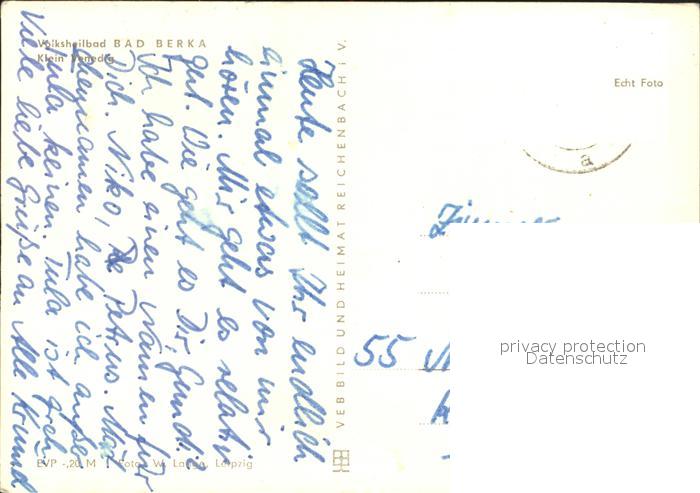 Volksheilbad BAD BERKA
Klein Venedig
Heute sollt Ihr endlich
einmal etwas von mir
hören. Mir geht es relativ
gut. Wie geht es Dir, Gundi?
Ich habe einen Namen für
Dich. Niko, Petrus. Mai
habe ich außer
Tula keinen. Tula ist
Viele liebe Grüße an Alle
EVP -,20 M Foto: W. Lange, Leipzig
VEB BILD UND HEIMAT REICHENBACH i. V.
Echt Foto
a
55
privacy protection
Datenschutz